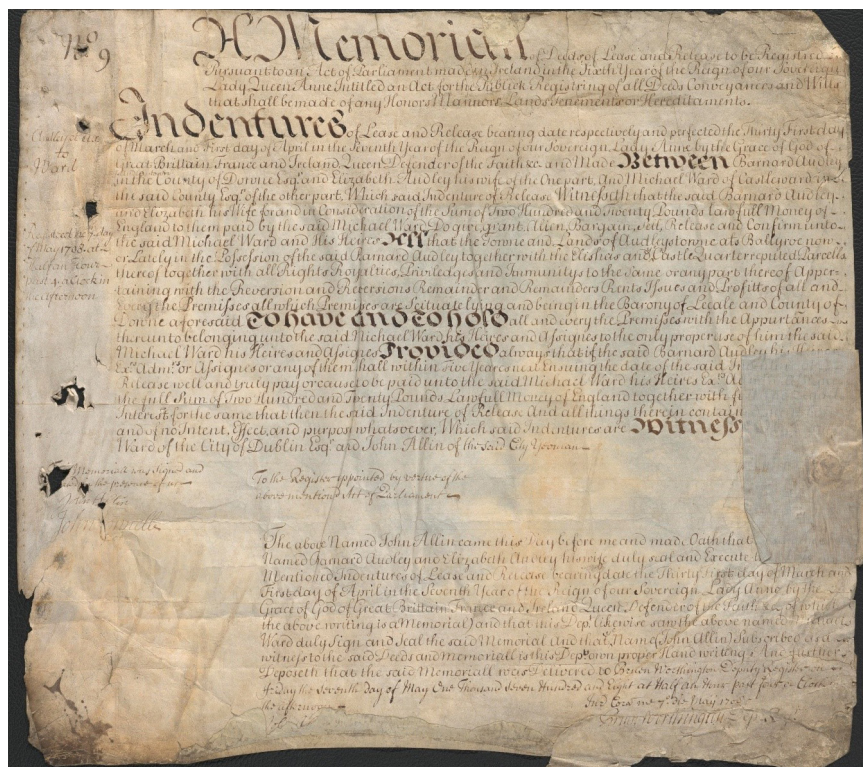 No
9
A Memorial of Deeds of Lease and Release to be Registred
Pursuant to an Act of Parliament made in Ireland in the Sixth Year of the Reign of our Sovereign
Lady Queen Anne Intitled an Act for the Publick Registring of all Deeds Conveyances and Wills
that shall be made of any Honors Mannors Lands Tenements or Hereditaments.
Indentures of Lease and Release bearing date respectively and perfected the Thirty First day
of March and First day of April in the Seventh Year of the Reign of our Sovereign Lady Anne by the Grace of God of
Great Brittain France and Ireland Queen Defender of the Faith &c. and Made Between Barnard Audley
in the County of Downe Esqr. and Elizabeth Audley his wife of the One part, And Michael Ward of Castleward in
the said County Esqr. of the other part, Which said Indenture of Release Witnesseth that the said Barnard Audley
and Elizabeth his Wife for and in Consideration of the Sum of Two Hundred and Twenty Pounds lawfull Money of
England to them paid by the said Michael Ward Do give, grant, Allien, Bargain, Sell, Release and Confirm unto
the said Michael Ward and His Heires All that the Towne and Lands of Audleystowne als Ballyroe now
or Lately in the Possession of the said Barnard Audley together with the and Castle Quarter reputed Parcells
thereof together with all Rights Royalties, Priviledges and Immunitys to the Same or any part thereof Apper-
taining with the Reversion and Reversions Remainder and Remainders Rents Issues and Profitts of all and
Every the Premisses all which Premises are Scituate lying and being in the Barony of Lecale and County of
Downe aforesaid To have and To hold all and every the Premisses with the Appurtances
thereunto belonging unto the said Michael Ward his Heires and Assignes to the only proper use of him the said
Michael Ward his Heires and Assignes Provided always that if the said Barnard Audley his Heires
Exrs. Admrs. or Assignes or any of them shall within Five Years next Ensuing the date of the said In
Release well and truly pay or cause to be paid unto the said Michael Ward his Heires Exrs. Ad
the full Sum of Two Hundred and Twenty Pounds Lawfull Money of England together with
Interest for the same that then the said Indenture of Release And all things therein contain
and of no Intent, Effect, and purpose whatsoever, Which said Indentures are Witness
Ward of the City of Dublin Esqr. and John Allin of the said City Yeoman
to
Ward
Registred the 7 day
of May 1708. at
half an hour
past 4 a Clock in
the Afternoon
Memoriall was Signed and
in the presence of us
To the Register appointed by vertue of the
above mentiond Act of Parliament
The above Named John Allin came this Day before me and made Oath that
Named Barnard Audley and Elizabeth Audley his wife duly seal and Execute
Mentioned Indentures of Lease and Release bearing date the Thirty First day of March and
First day of April in the Seventh Year of the Reign of our Sovereign Lady Anne by the
Grace of God of Great Brittain France and Ireland Queen Defender of the Faith &c. (of which
the above writing is a Memorial) and that this Dept. likewise saw the above named Michael
Ward duly Sign and Seal the said Memorial And that Name (John Allin) Subscribed as a
witness to the said Deeds and Memoriall is this Depts. own proper Hand writing And further
Deposeth that the said Memoriall was Delivered to Benon Worthington Deputy Register on
Friday the Seventh day of May One Thousand Seven Hundred and Eight at Half an Hour past four o Clock
the afternoon
Jur Coram me 7 die May 1708